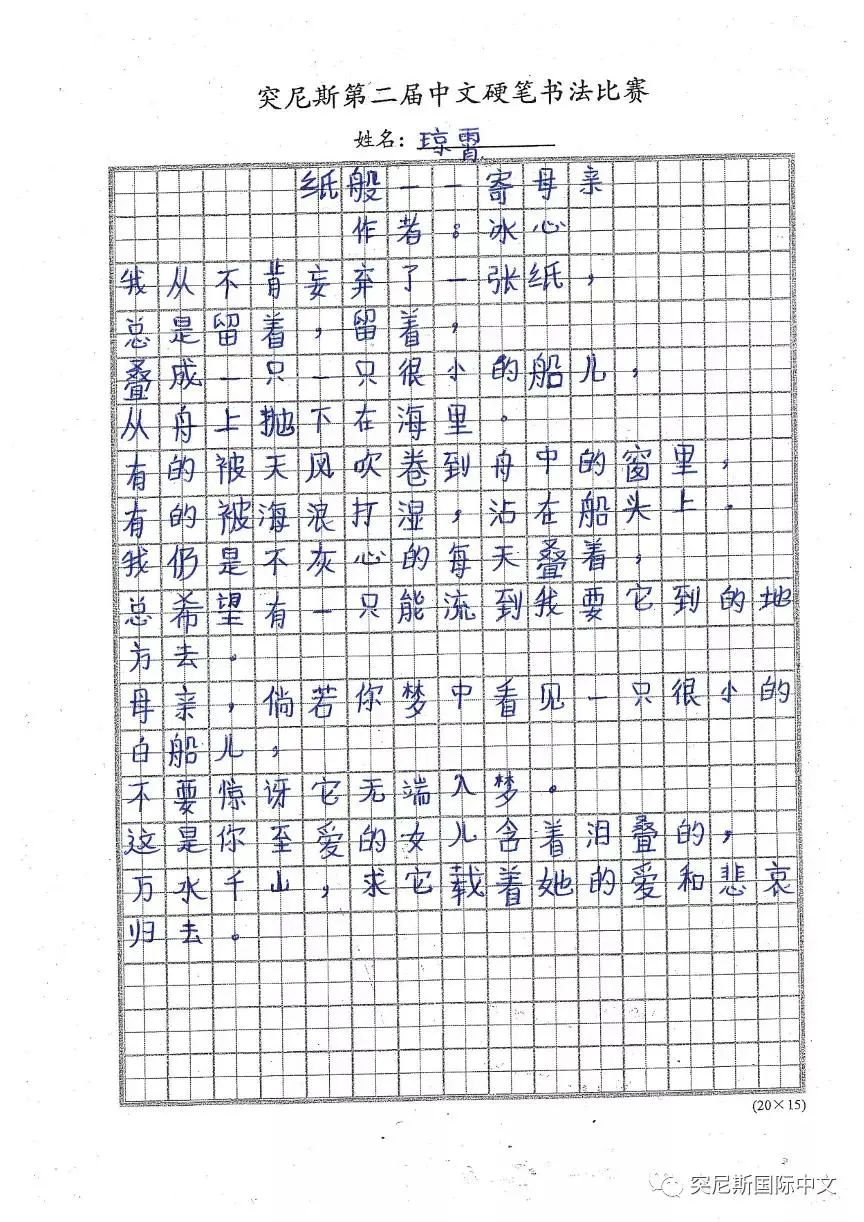 突尼斯第二届中文硬笔书法比赛
姓名：琼霄
纸般——寄母亲
作者：冰心
我从不肯妄弃了一张纸，
总是留着，留着，
叠成一只一只很小的船儿，
从舟上抛下在海里。
有的被天风吹卷到舟中的窗里，
有的被海浪打湿，沾在船头上。
我仍是不灰心的每天叠着，
总希望有一只能流到我要它到的地
方去。
母亲，倘若你梦中看见一只很小的
白船儿，
不要惊讶它无端入梦。
这是你至爱的女儿含着泪叠的，
万水千山，求它载着她的爱和悲哀
归去。
(20×15)
突尼斯国际中文